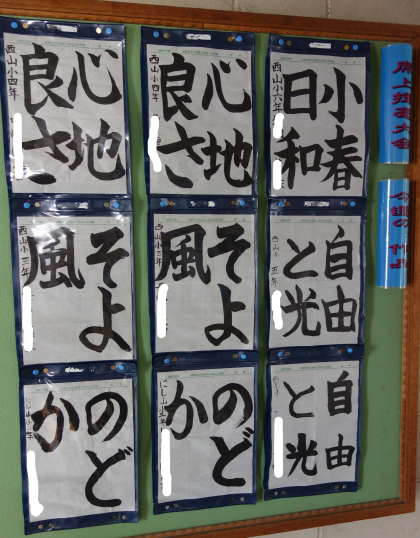 小春
日和
西山小六年
心地
良さ
西山小四年
心地
良さ
西山小四年
自由
と光
西山小 五年
そよ
風
西山小三年
そよ
風
西山小三年
自由
と光
のど
か
にし山小二年
のど
か
今週の 作品